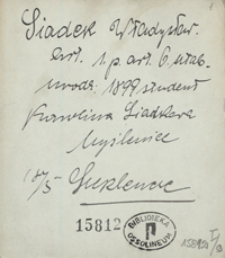 Siadek Władysław.
kr. 1. p. art. 6. złab.
urodz: 1899 student
Karolina Siadkowa
Myślenice
18/5
15812
BIBLIOTEKA
OSSOLINEUM